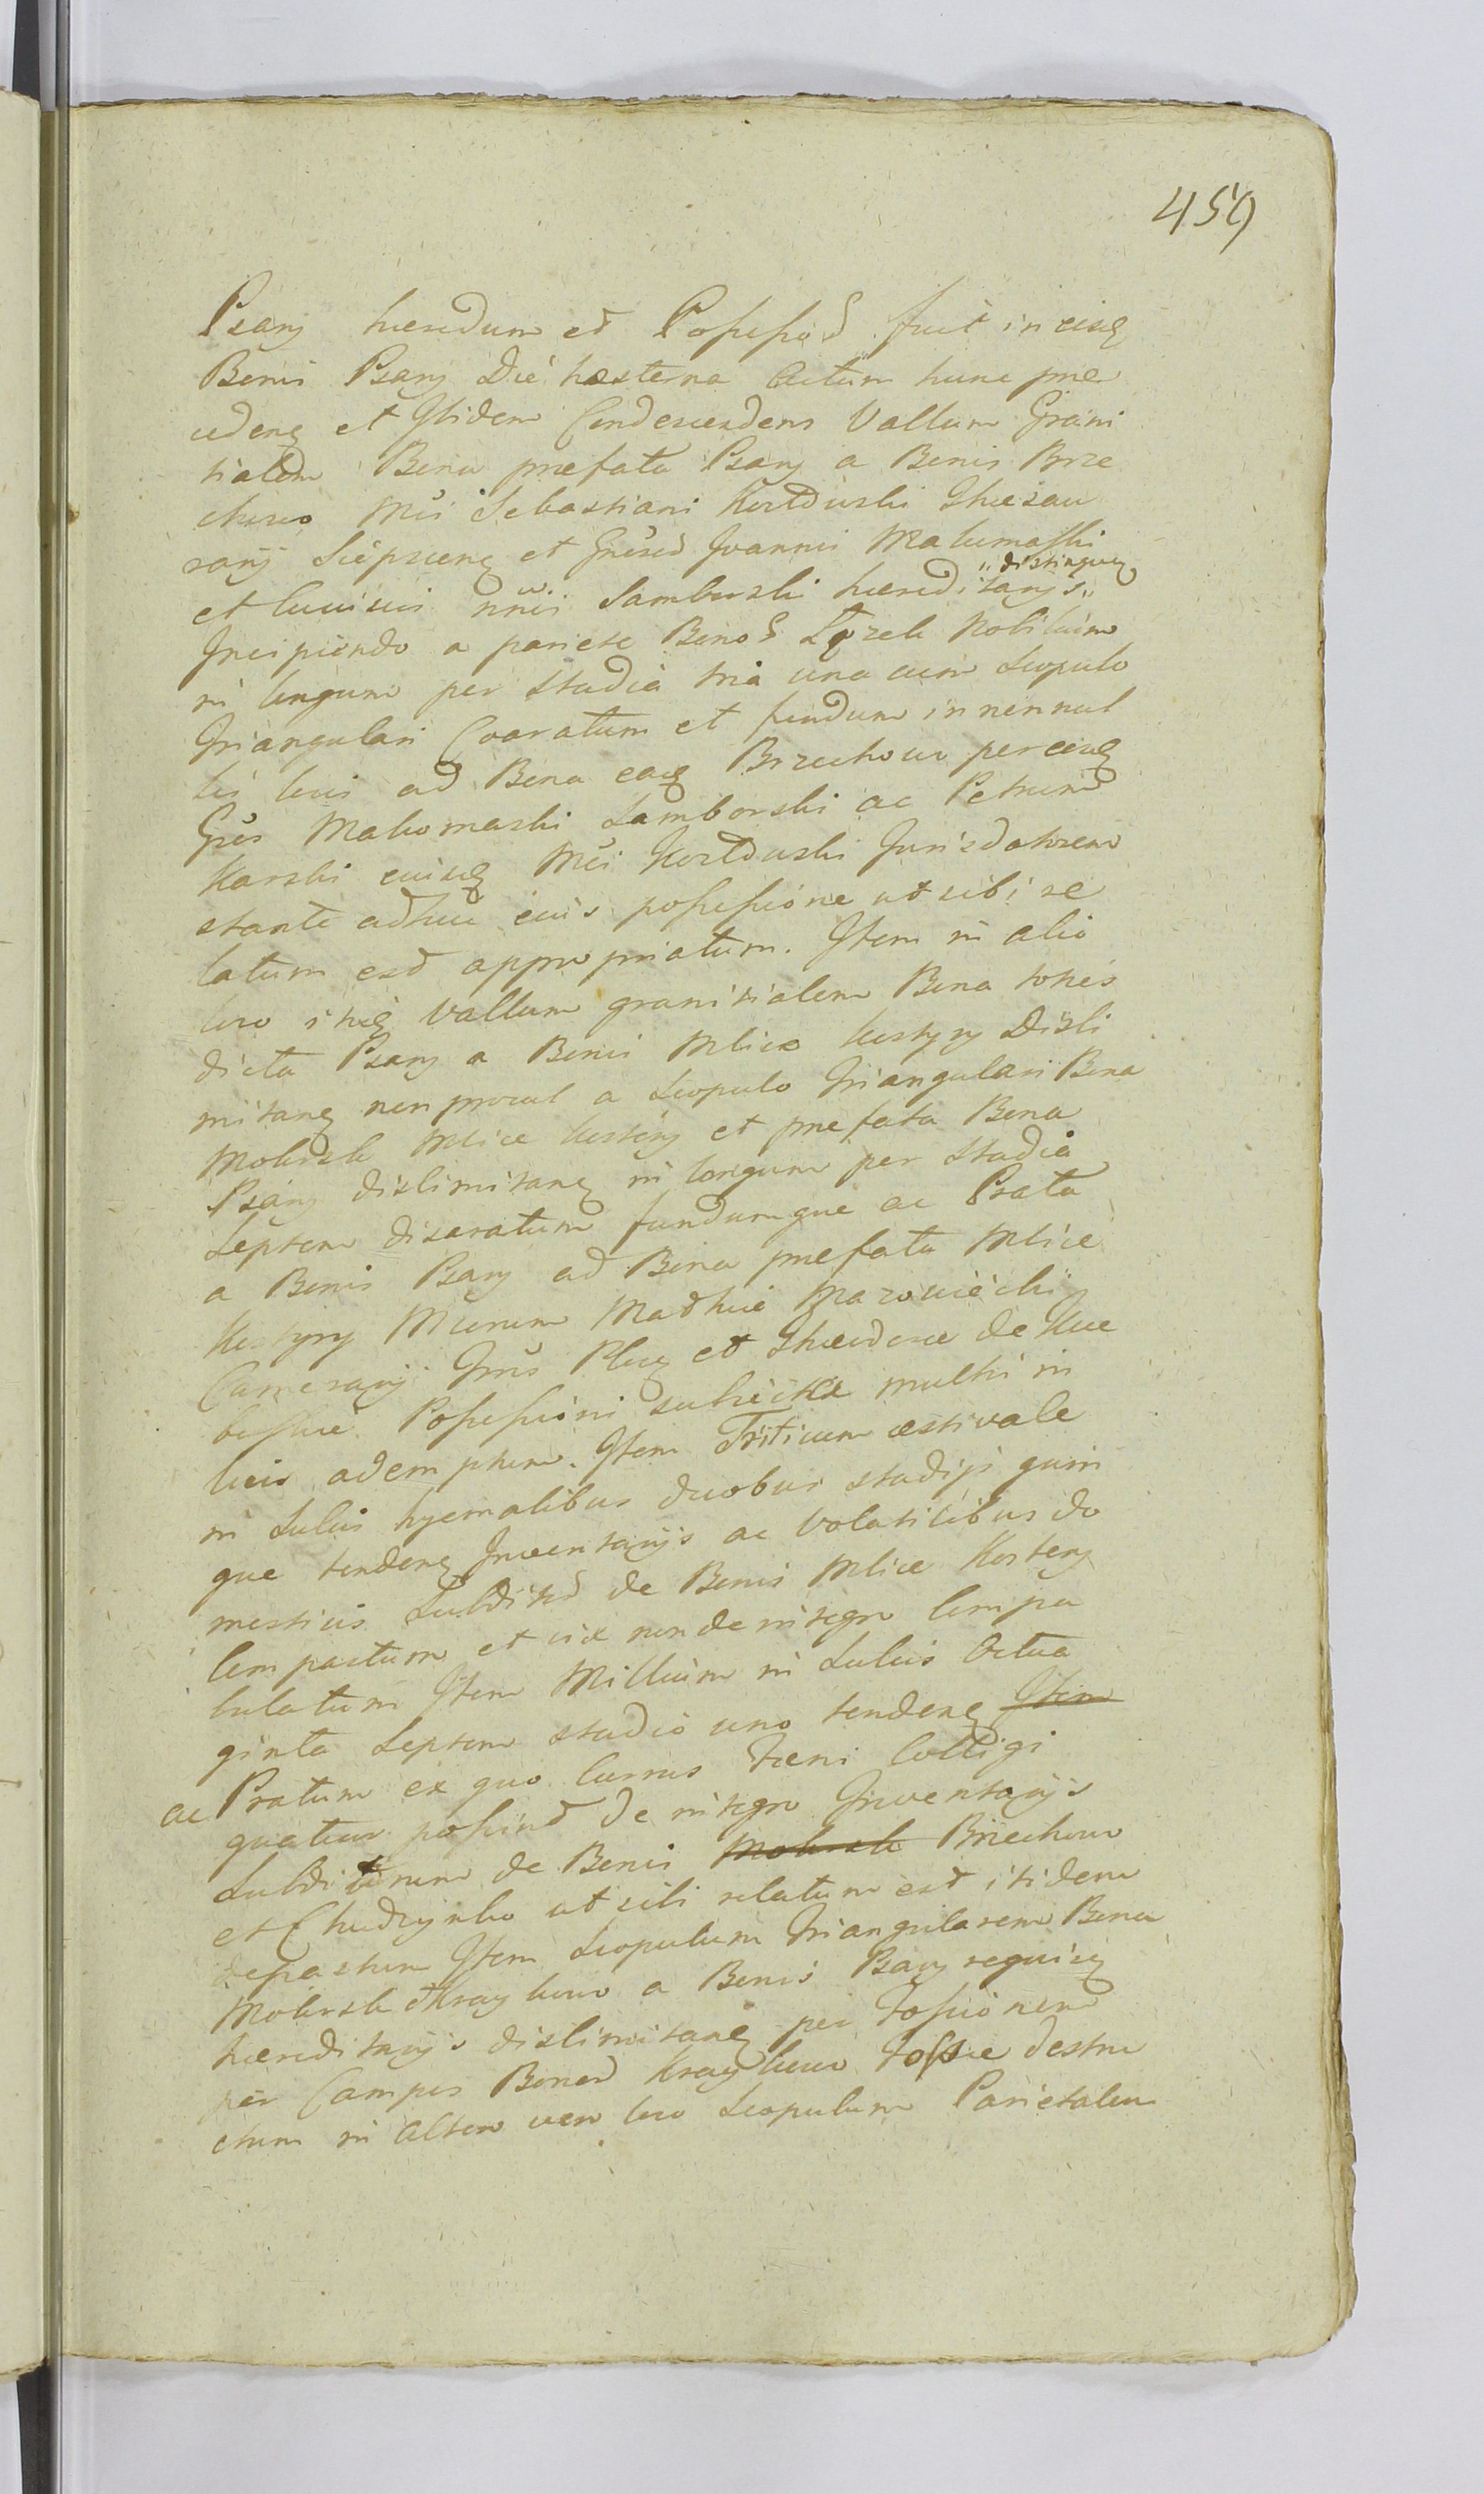 459
Psary hæredum et Possession fuit in eisq
Bonis Psary Die hæsterna Actum hunc præ
cedenq et Ibidem Condescendens Vallum Grani
tialem Bona præfata Psary a Bonis Brze
chowo Mci Sebastiani Thesau
rarij Sieprcenq et Joannis Makomaski
et Samborski hæreditarys „distinguen„
Incipiendo a pariete Bonor Nobilium
in longum per Stadia tria una cum Scopulo
Triangulari Coaratum et fundum in nonnul
lis locis ad Bona eaq Brzechowo per eosq
Gres Makomaski Samborski ac Petrum
Karski eiusq Mci Jurisdatorem
stante adhuc eius possessione ut sibi re
latum est appropriatum. Item in alio
loco itiq Vallum granitialem Bona toties
dicta Psary a Bonis Mlice Kostyry Disli
mitanq non procul a Scopulo Triangulari Bona
Mokrsk Mlice Kostery et præfata Bona
Psary dislimitanq in longum per Stadia
Septem disaratum fundumque ac Prata
a Bonis Psary ad Bona præfata Mlice
Kostyry Murum Mathiæ Mazowiecki
Camerarij Grus Plocq et Theodoræ de
Possessioni subiecta multis in
locis ademptum. Item Triticum æstivale
in Sulcis hyemalibus duobus stadijs quin
que tendenq Inventarijs ac Volatilibus do
mesticis Subditor de Bonis Mlice Kostery
Compactum et vix non de integro Compa
bulatum Item Millium in Sulcis Octua
ginta Septem stadio uno tendenq Item
ac Pratum ex quo Currus Fæni Colligi
quatuor possint de integro Inventarijs
Subditorum de Bonis Mokrsk Brzechowo
et Chudzynko ut sibi relatum est itidem
depastum Item Scopulum Triangularem Bona
Mokrsk Kraykowo a Bonis Psary reguisq
hæreditarijs dislimitanq per Fossionem
per Campos Bonor Kraykowo Fossæ destru
ctum in altero vero loco Scopulum Parietalem